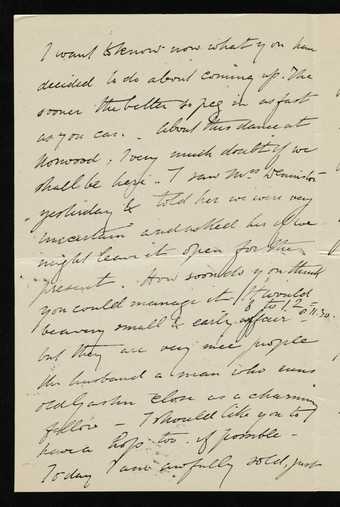 I want to know now what you have
decided to do about coming up. The
sooner the better so peg in as fast
as you can. - About this dance at
Norwood, I very much doubt if we
shall be here - I saw Mrs
yesterday & told her we were very
uncertain and asked her if we
might leave it open for the
present. How soon do you think
you could manage it / It would
be a very small & early affair 8 to 12 - or 11.30.
but they are very nice people
the husband a man who runs
old Close as a charming
fellow - I should like you to
have a hop too if possible -
Today I am awfully sold, just